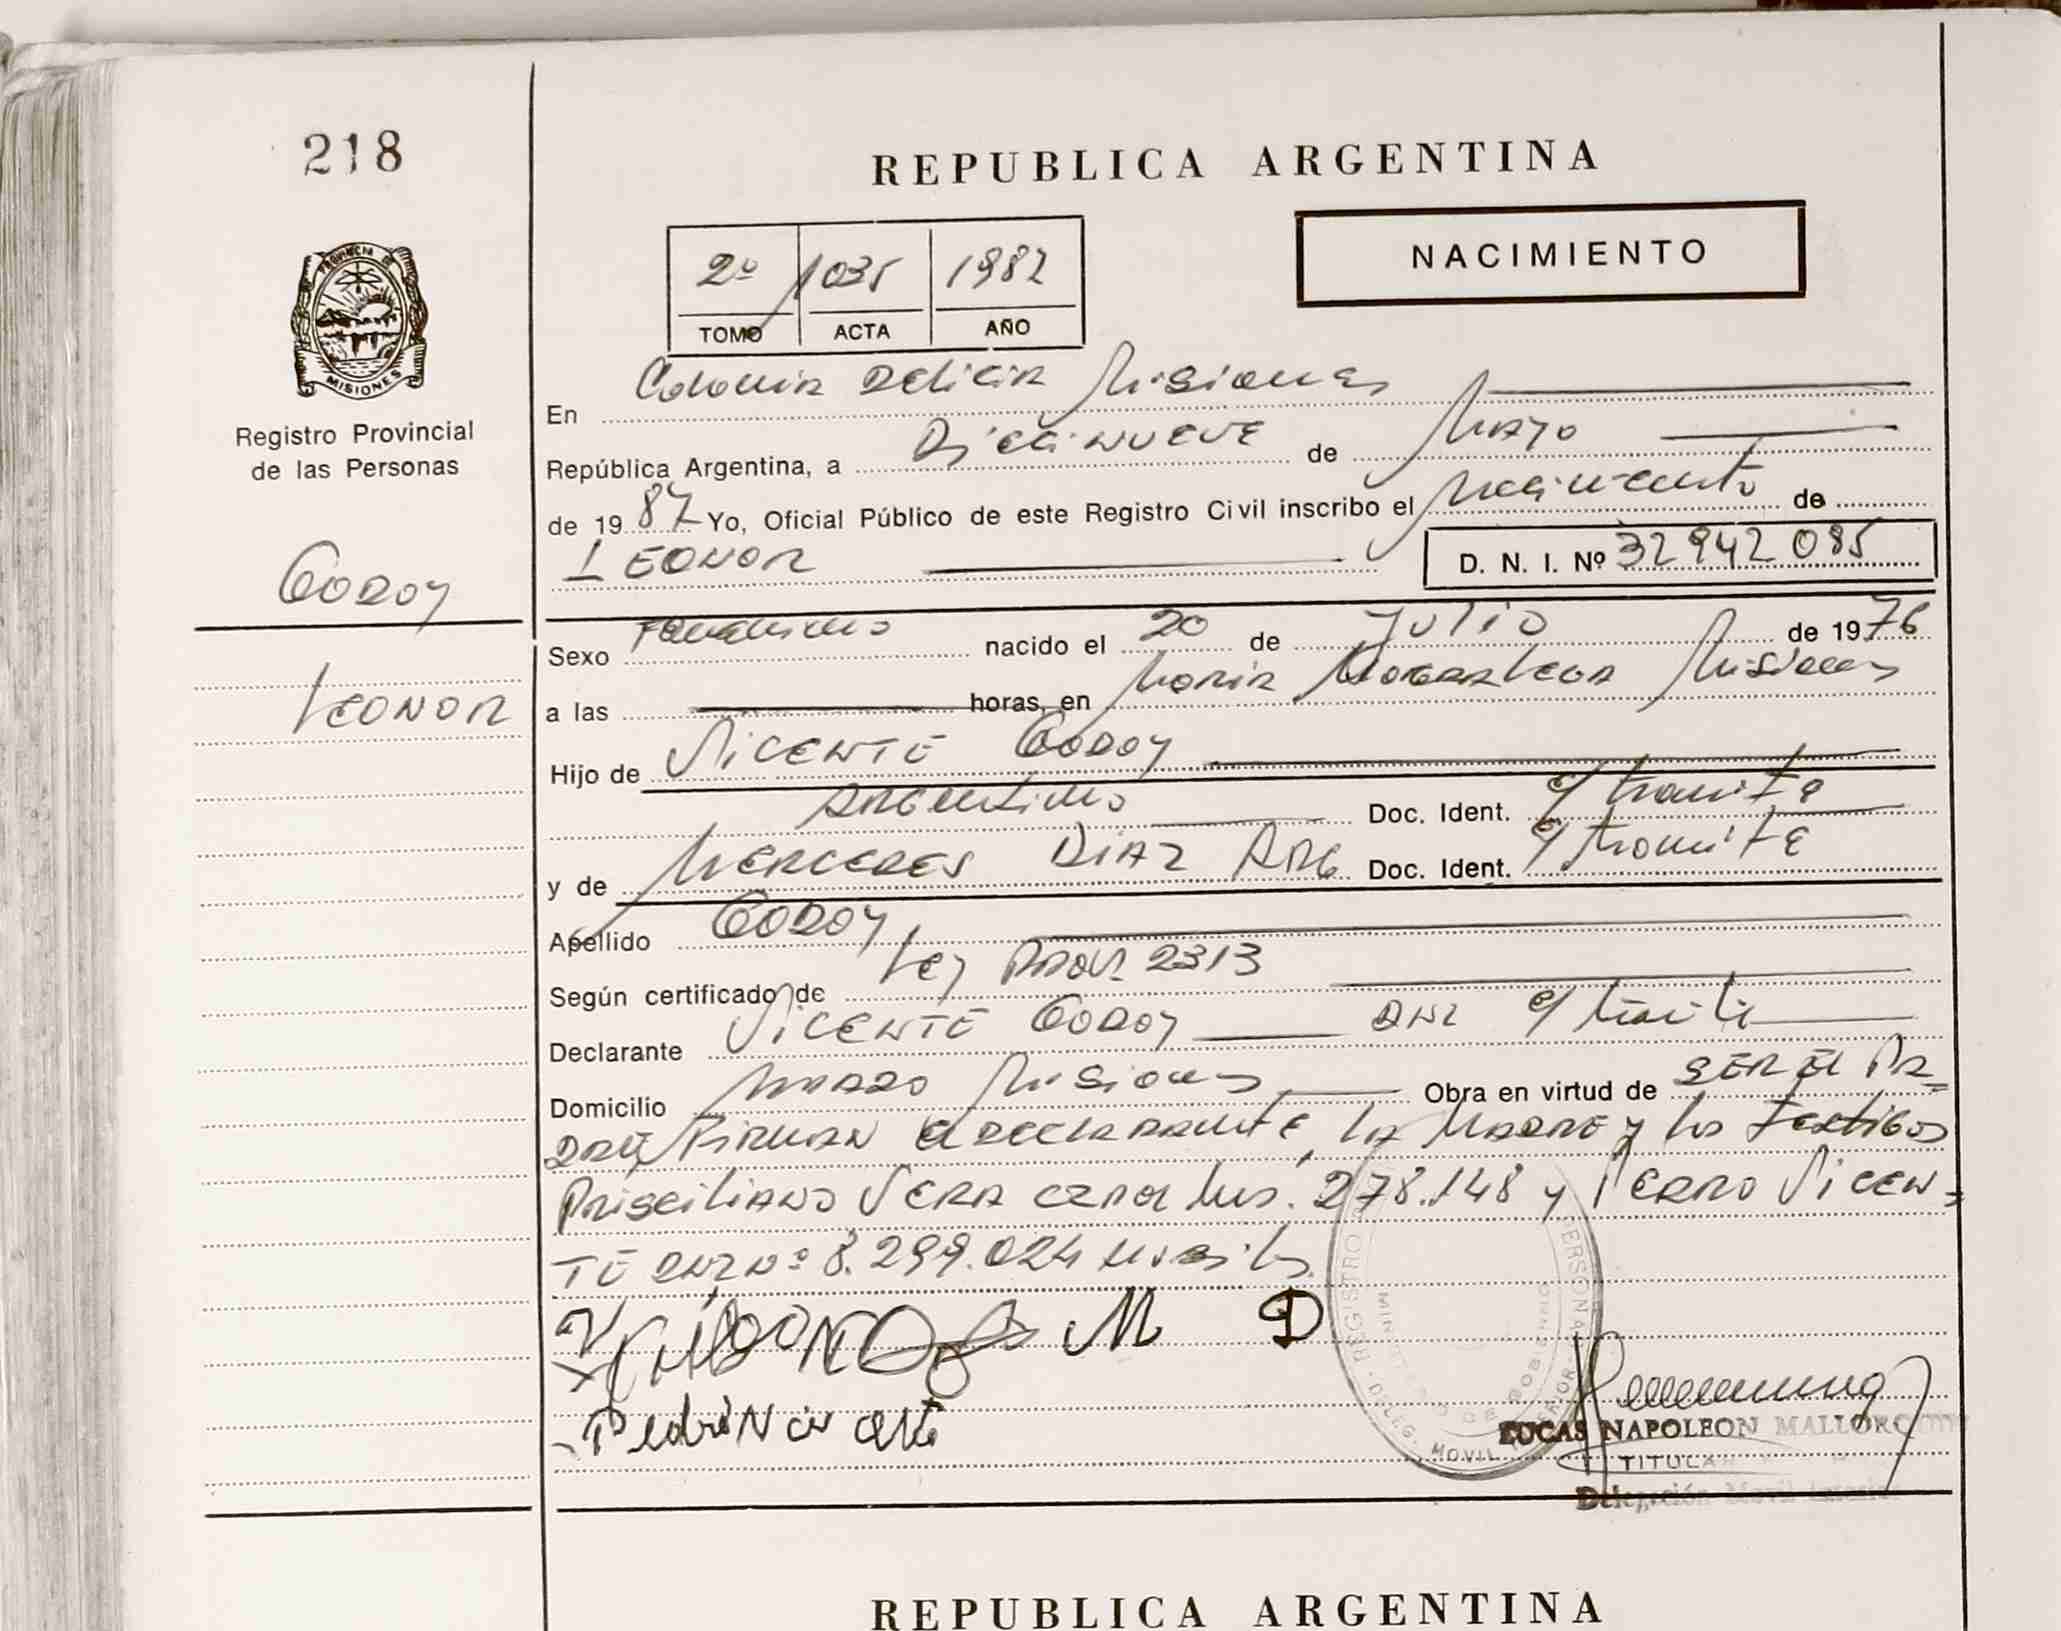 218
REPUBLICA ARGENTINA
2º 1035 1982
TOMO ACTA AÑO
NACIMIENTO
PROVINCIA DE
MISIONES
Registro Provincial
de las Personas
En Colonia Delicia Misiones
República Argentina, a Diecinueve de Mayo
de 1987 Yo, Oficial Público de este Registro Civil inscribo el Nacimiento de
LEONOR D. N. I. Nº 32942085
GODOY
LEONOR
Sexo Femenino nacido el 20 de Julio de 1976
a las horas, en Maria Magdalena Misiones
Hijo de VICENTE GODOY
Argentino Doc. Ident. e/ tramite
y de MERCEDES DIAZ ARG Doc. Ident. e/ tramite
Apellido GODOY
Según certificado de Ley Prov 2313
Declarante VICENTE GODOY DNI e/ tramite
Domicilio Misiones Obra en virtud de SER EL PA
DRE Firman el declarante, la Madre y los testigos
PRISCILIANO VERA 278.148 y PEDRO VICEN
TE DNI Nº 8.299.024
M D
REGISTRO PERSONA
DELEG. MOVIL
LUCAS NAPOLEON
TITULAR
Delegación Movil
REPUBLICA ARGENTINA